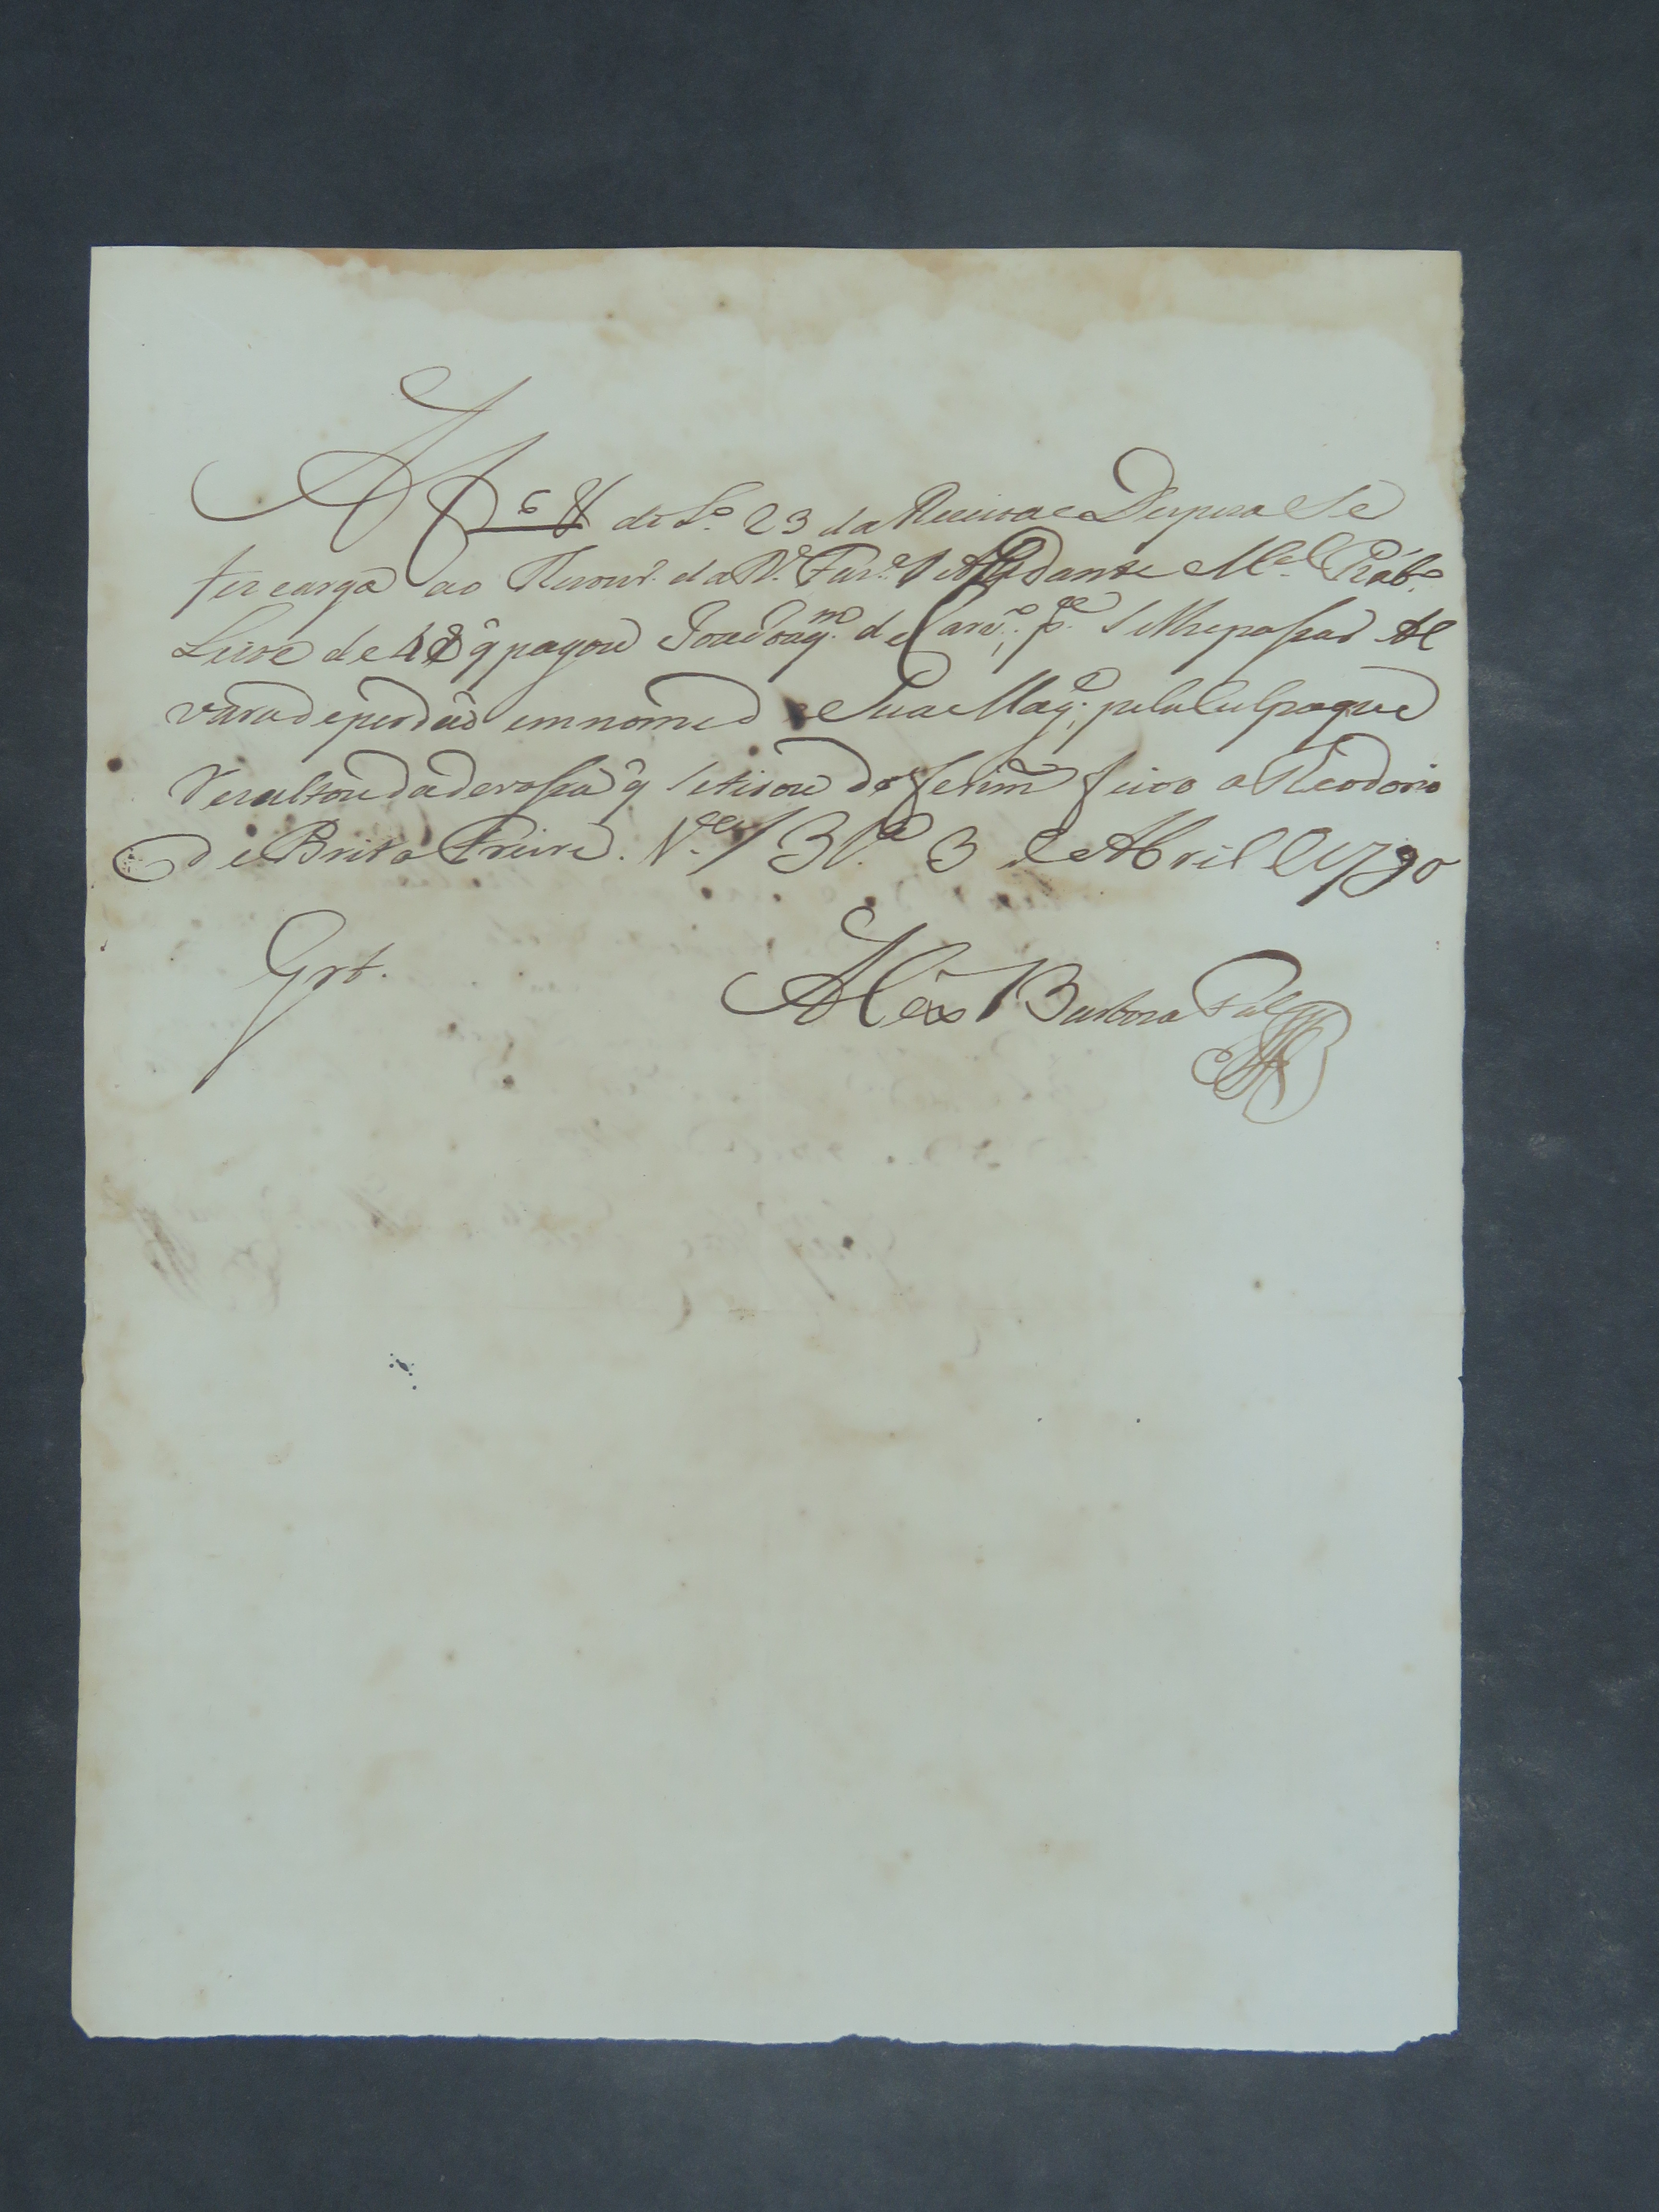 Af.º 8 do L.º 23 da Receita e Despeza Se
fez carga ao Thezour.º da R. Faz.ª o Ajudante M.el Piz.º
Leite de 4$ q̃ pagou João Joaq.m de Carv.º p.ª Se lhe passar Al
vara de perdaõ em nome d Sua Mag.e pela Culpa que
Rezultou da devassa q̃ Se tirou do ferim.to feito a Theodorio
de Brito Freire. V.ª 3 de Abril de 1790
Grt.
Alex Barboza